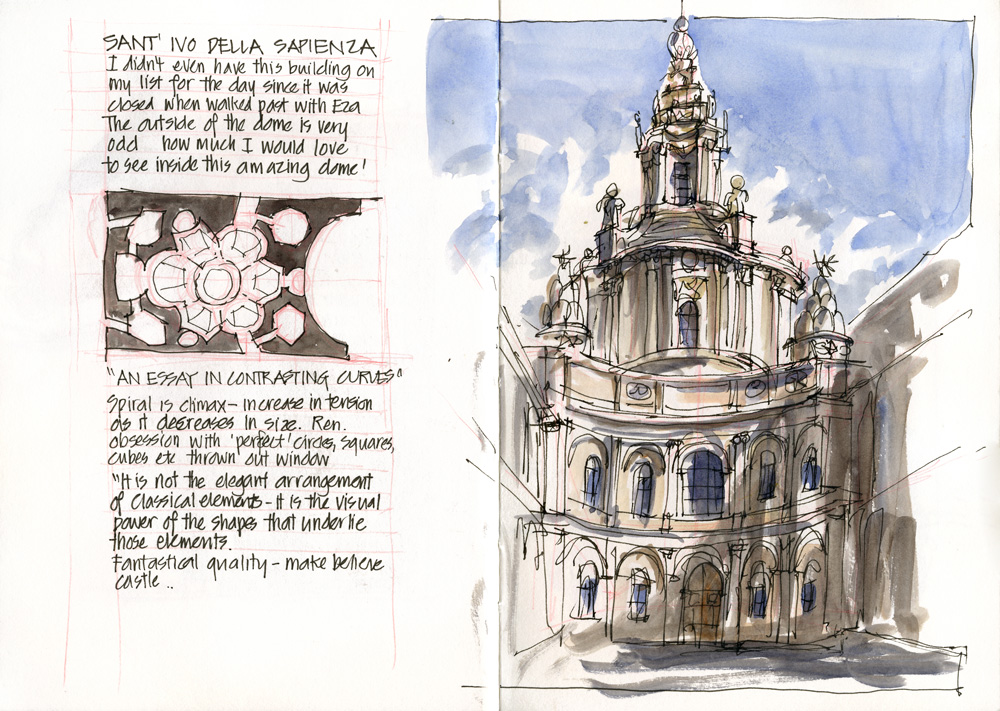 SANT' IVO DELLA SAPIENZA
I didn't even have this building on
my list for the day since it was
closed when walked past with Eza
The outside of the dome is very
odd how much I would love
to see inside this amazing dome!
"AN ESSAY IN CONTRASTING CURVES"
Spiral is climax - increase in tension
as it decreases in size. Ren.
obsession with 'perfect' circles, squares,
cubes etc thrown out window
"It is not the elegant arrangement
of classical elements - it is the visual
power of the shapes that underlie
those elements.
Fantastical quality - make believe
castle ..